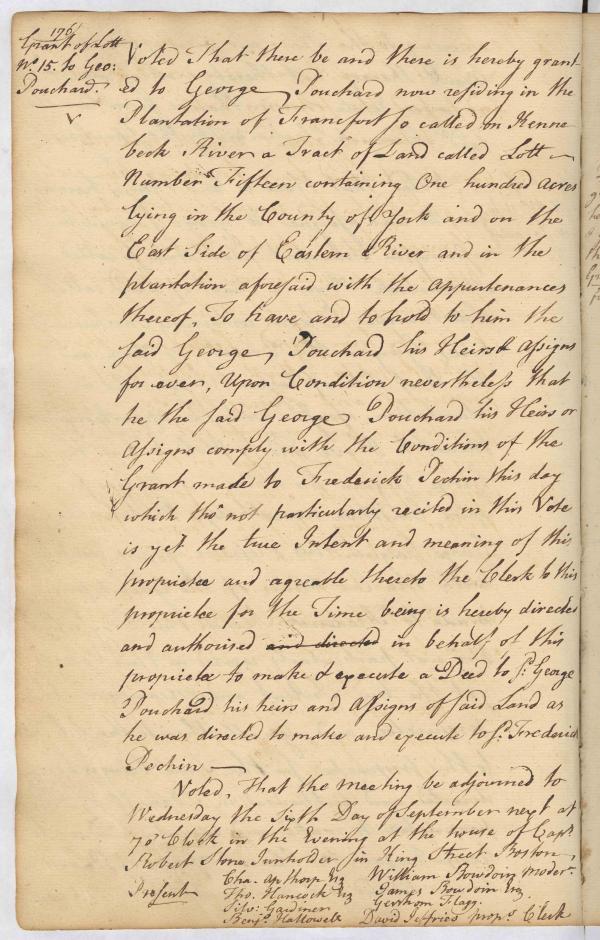 1761
Grant of Lott
Nº. 15. to Geo:
Pouchard.
Voted That there be and there is hereby grant-
ed to George Pouchard now residing in the
Plantation of Francfort so called on Kenne
beck River a Tract of Land called Lott
Number Fifteen containing One hundred acres
lying in the County of York and on the
East Side of Eastern River and in the
plantation aforesaid with the appurtenances
thereof, To have and to hold to him the
said George Pouchard his Heirs & assigns
for ever, Upon Condition nevertheless that
he the said George Pouchard his Heirs or
Assigns comply with the Conditions of the
Grant made to Frederick Pechin this day
which tho' not particularly recited in this Vote
is yet the true Intent and meaning of this
proprietee and agreable thereto the Clerk to this
proprietee for the Time being is hereby directed
and authorised and directed in behalf of this
propriete to make & execute a Deed to sd. George
Pouchard his heirs and Assigns of said Land as
he was directed to make and execute to sd. Frederick
Pechin
Voted, That the meeting be adjourned to
Wednesday the Sixth Day of September next at
7 o'Clock in the Evening at the house of Capt.
Robert Stone Innholder in King Street Boston
Present Cha. Apthorp Esq William Bowdoin Moder.
Tho. Hancock Esq James Bowdoin Esq
Silv: Gardiner Gershom Flagg.
Benja. Hallowell David Jeffries prop.s Clerk